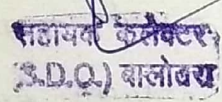 सहायक कलेक्टर,
(S.D.O.) बालोतरा